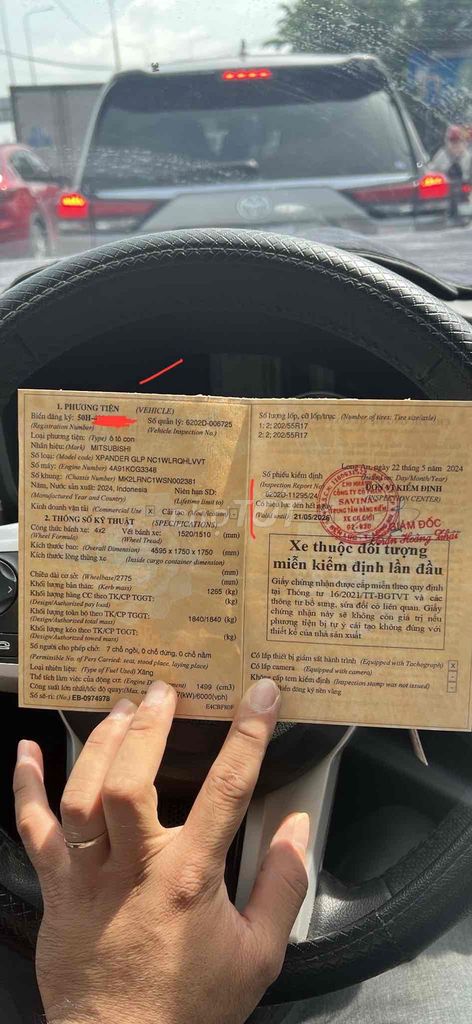 1. PHƯƠNG TIỆN (VEHICLE)
Biển đăng ký: 50H-
(Registration Number)
Số quản lý: 6202D-006725
(Vehicle Inspection No.)
Loại phương tiện: (Type) ô tô con
Nhãn hiệu: (Mark) MITSUBISHI
Số loại: (Model code) XPANDER GLP NC1WLRQHLVVT
Số máy: (Engine Number) 4A91KCG3348
Số khung: (Chassis Number) MK2LRNC1WSN002381
Năm, Nước sản xuất: 2024, Indonesia
(Manufactured Year and Country)
Niên hạn SD:
(Lifetime limit to)
Kinh doanh vận tải (Commercial Use) X
Cải tạo (Modification)
2. THÔNG SỐ KỸ THUẬT (SPECIFICATIONS)
Công thức bánh xe: 4x2
(Wheel Formula)
Vết bánh xe: 1520/1510 (mm)
(Wheel Tread)
Kích thước bao: (Overall Dimension) 4595 x 1750 x 1750 (mm)
Kích thước lòng thùng xe (Inside cargo container dimension)
(mm)
Chiều dài cơ sở: (Wheelbase) 2775 (mm)
Khối lượng bản thân: (Kerb mass) 1265 (kg)
Khối lượng hàng CC theo TK/CP TGGT: (kg)
(Design/Authorized pay load)
Khối lượng toàn bộ theo TK/CP TGGT: 1840/1840 (kg)
(Design/Authorized total mass)
Khối lượng kéo theo TK/CP TGGT: (kg)
(Design/Authorized towed mass)
Số người cho phép chở: 7 chỗ ngồi, 0 chỗ đứng, 0 chỗ nằm
(Permissible No. of Pers Carried: seat, stood place, laying place)
Loại nhiên liệu: (Type of Fuel Used) Xăng
Thể tích làm việc của động cơ: (Engine 1499 (cm3)
Công suất lớn nhất/tốc độ quay: (Max. 7(kW)/6000(vph)
Số sê-ri: (No.) EB-0974978
Số lượng lốp, cỡ lốp/trục (Number of tires: Tire size/axle)
1: 2; 202/55R17
2: 2; 202/55R17
Long An, ngày 22 tháng 5 năm 2024
Số phiếu kiểm định
(Inspection Report No)
6202D-11295/24
ĐƠN VỊ KIỂM ĐỊNH
(INSPECTION CENTER)
Có hiệu lực đến hết ngày
21/05/2026
GIÁM ĐỐC
Xe thuộc đối tượng
miễn kiểm định lần đầu
Giấy chứng nhận được cấp miễn theo quy định
tại Thông tư 16/2021/TT-BGTVT và các
thông tư bổ sung, sửa đổi có liên quan. Giấy
chứng nhận này sẽ không còn giá trị nếu
phương tiện bị tự ý cải tạo không đúng với
thiết kế của nhà sản xuất.
Có lắp thiết bị giám sát hành trình (Equipped with Tachograph) X
Có lắp camera (Equipped with camera) -
Không cấp tem kiểm định (Inspection stamp was not issued) -